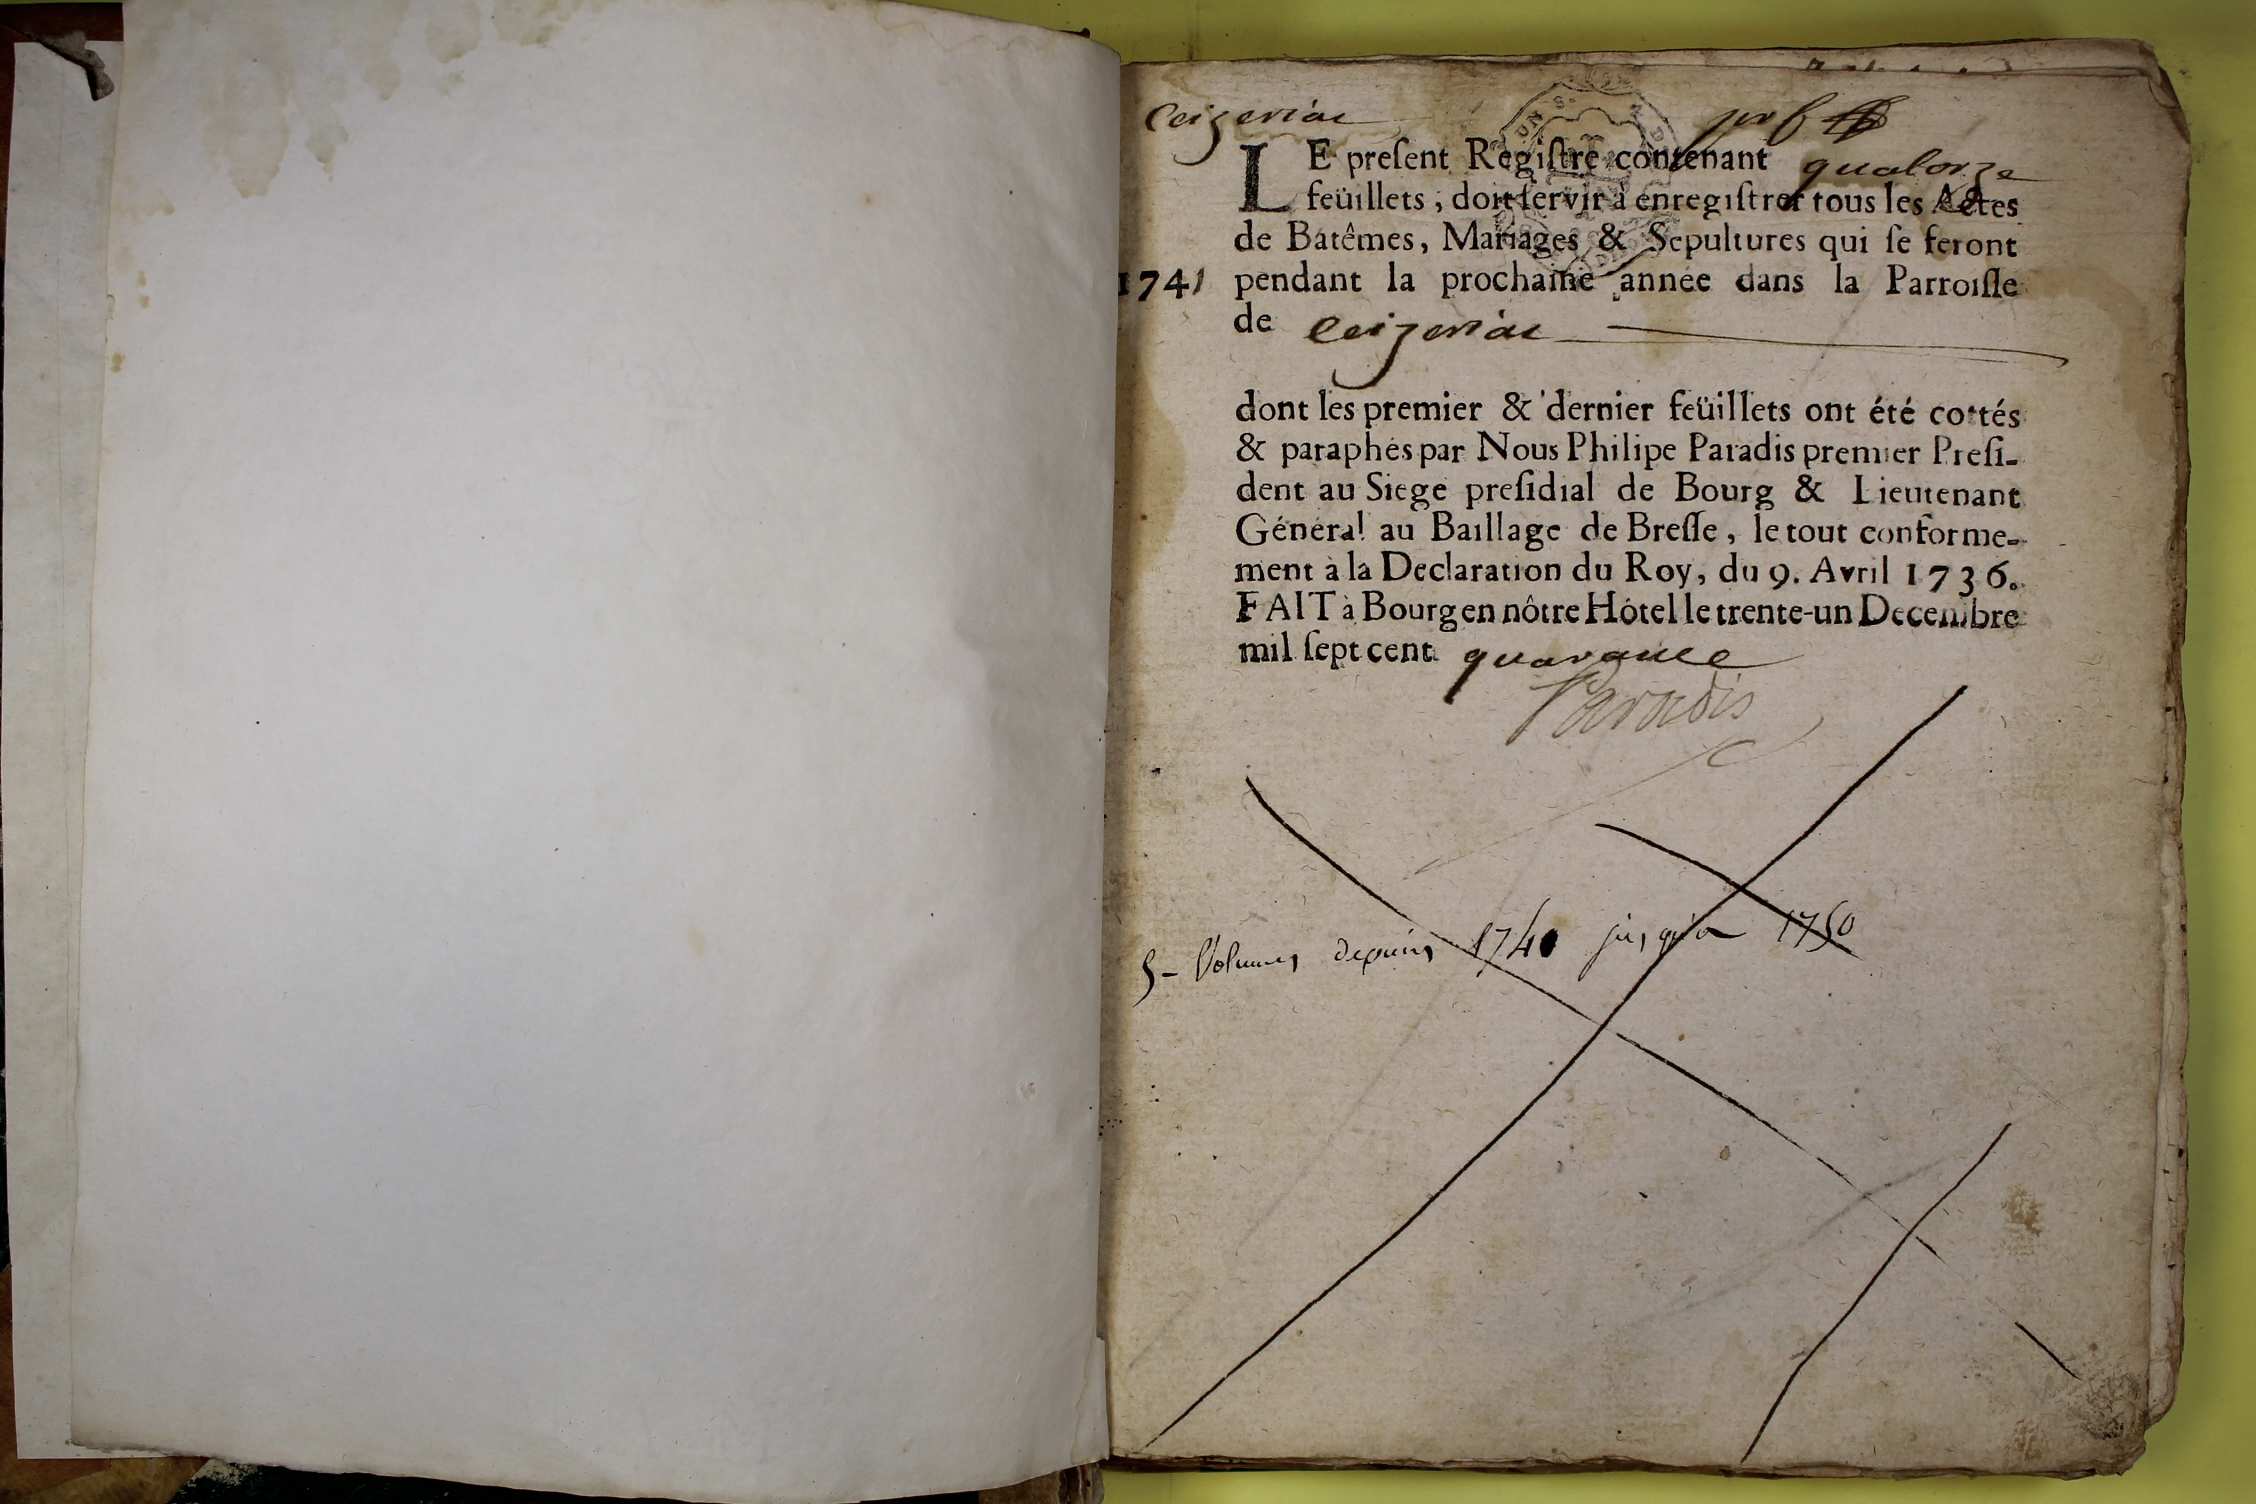 Ceizeriac
LE preſent Regiſtre contenant quatorze
feüillets, doit ſervir à enregiſtrer tous les Actes
de Batêmes, Mariages & Sepultures qui ſe feront
1741 pendant la prochaine année dans la Parroiſſe
de Ceizeriac
dont les premier & dernier feüillets ont été cottés
& paraphés par Nous Philipe Paradis premier Preſi-
dent au Siege preſidial de Bourg & Lieutenant
Général au Baillage de Breſſe, le tout conforme-
ment à la Declaration du Roy, du 9. Avril 1736.
FAIT à Bourg en nôtre Hôtel le trente-un Decembre
mil ſept cent quarante
Paradis
5 - Volumes depuis 1740 jusqu'a 1750